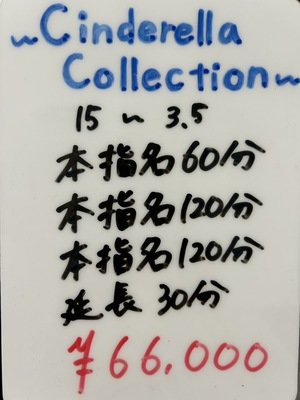 ~Cinderella
Collection~
15 ~ 3.5
本指名60分
本指名120分
本指名120分
延長 30分
¥66.000